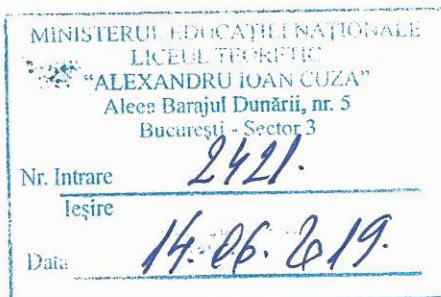 MINISTERUL EDUCAȚIEI NAȚIONALE
LICEUL TEORETIC
"ALEXANDRU IOAN CUZA"
Aleea Barajul Dunării, nr. 5
București - Sector 3
Nr. Intrare 2421.
Ieșire
Data 14.06.2019.